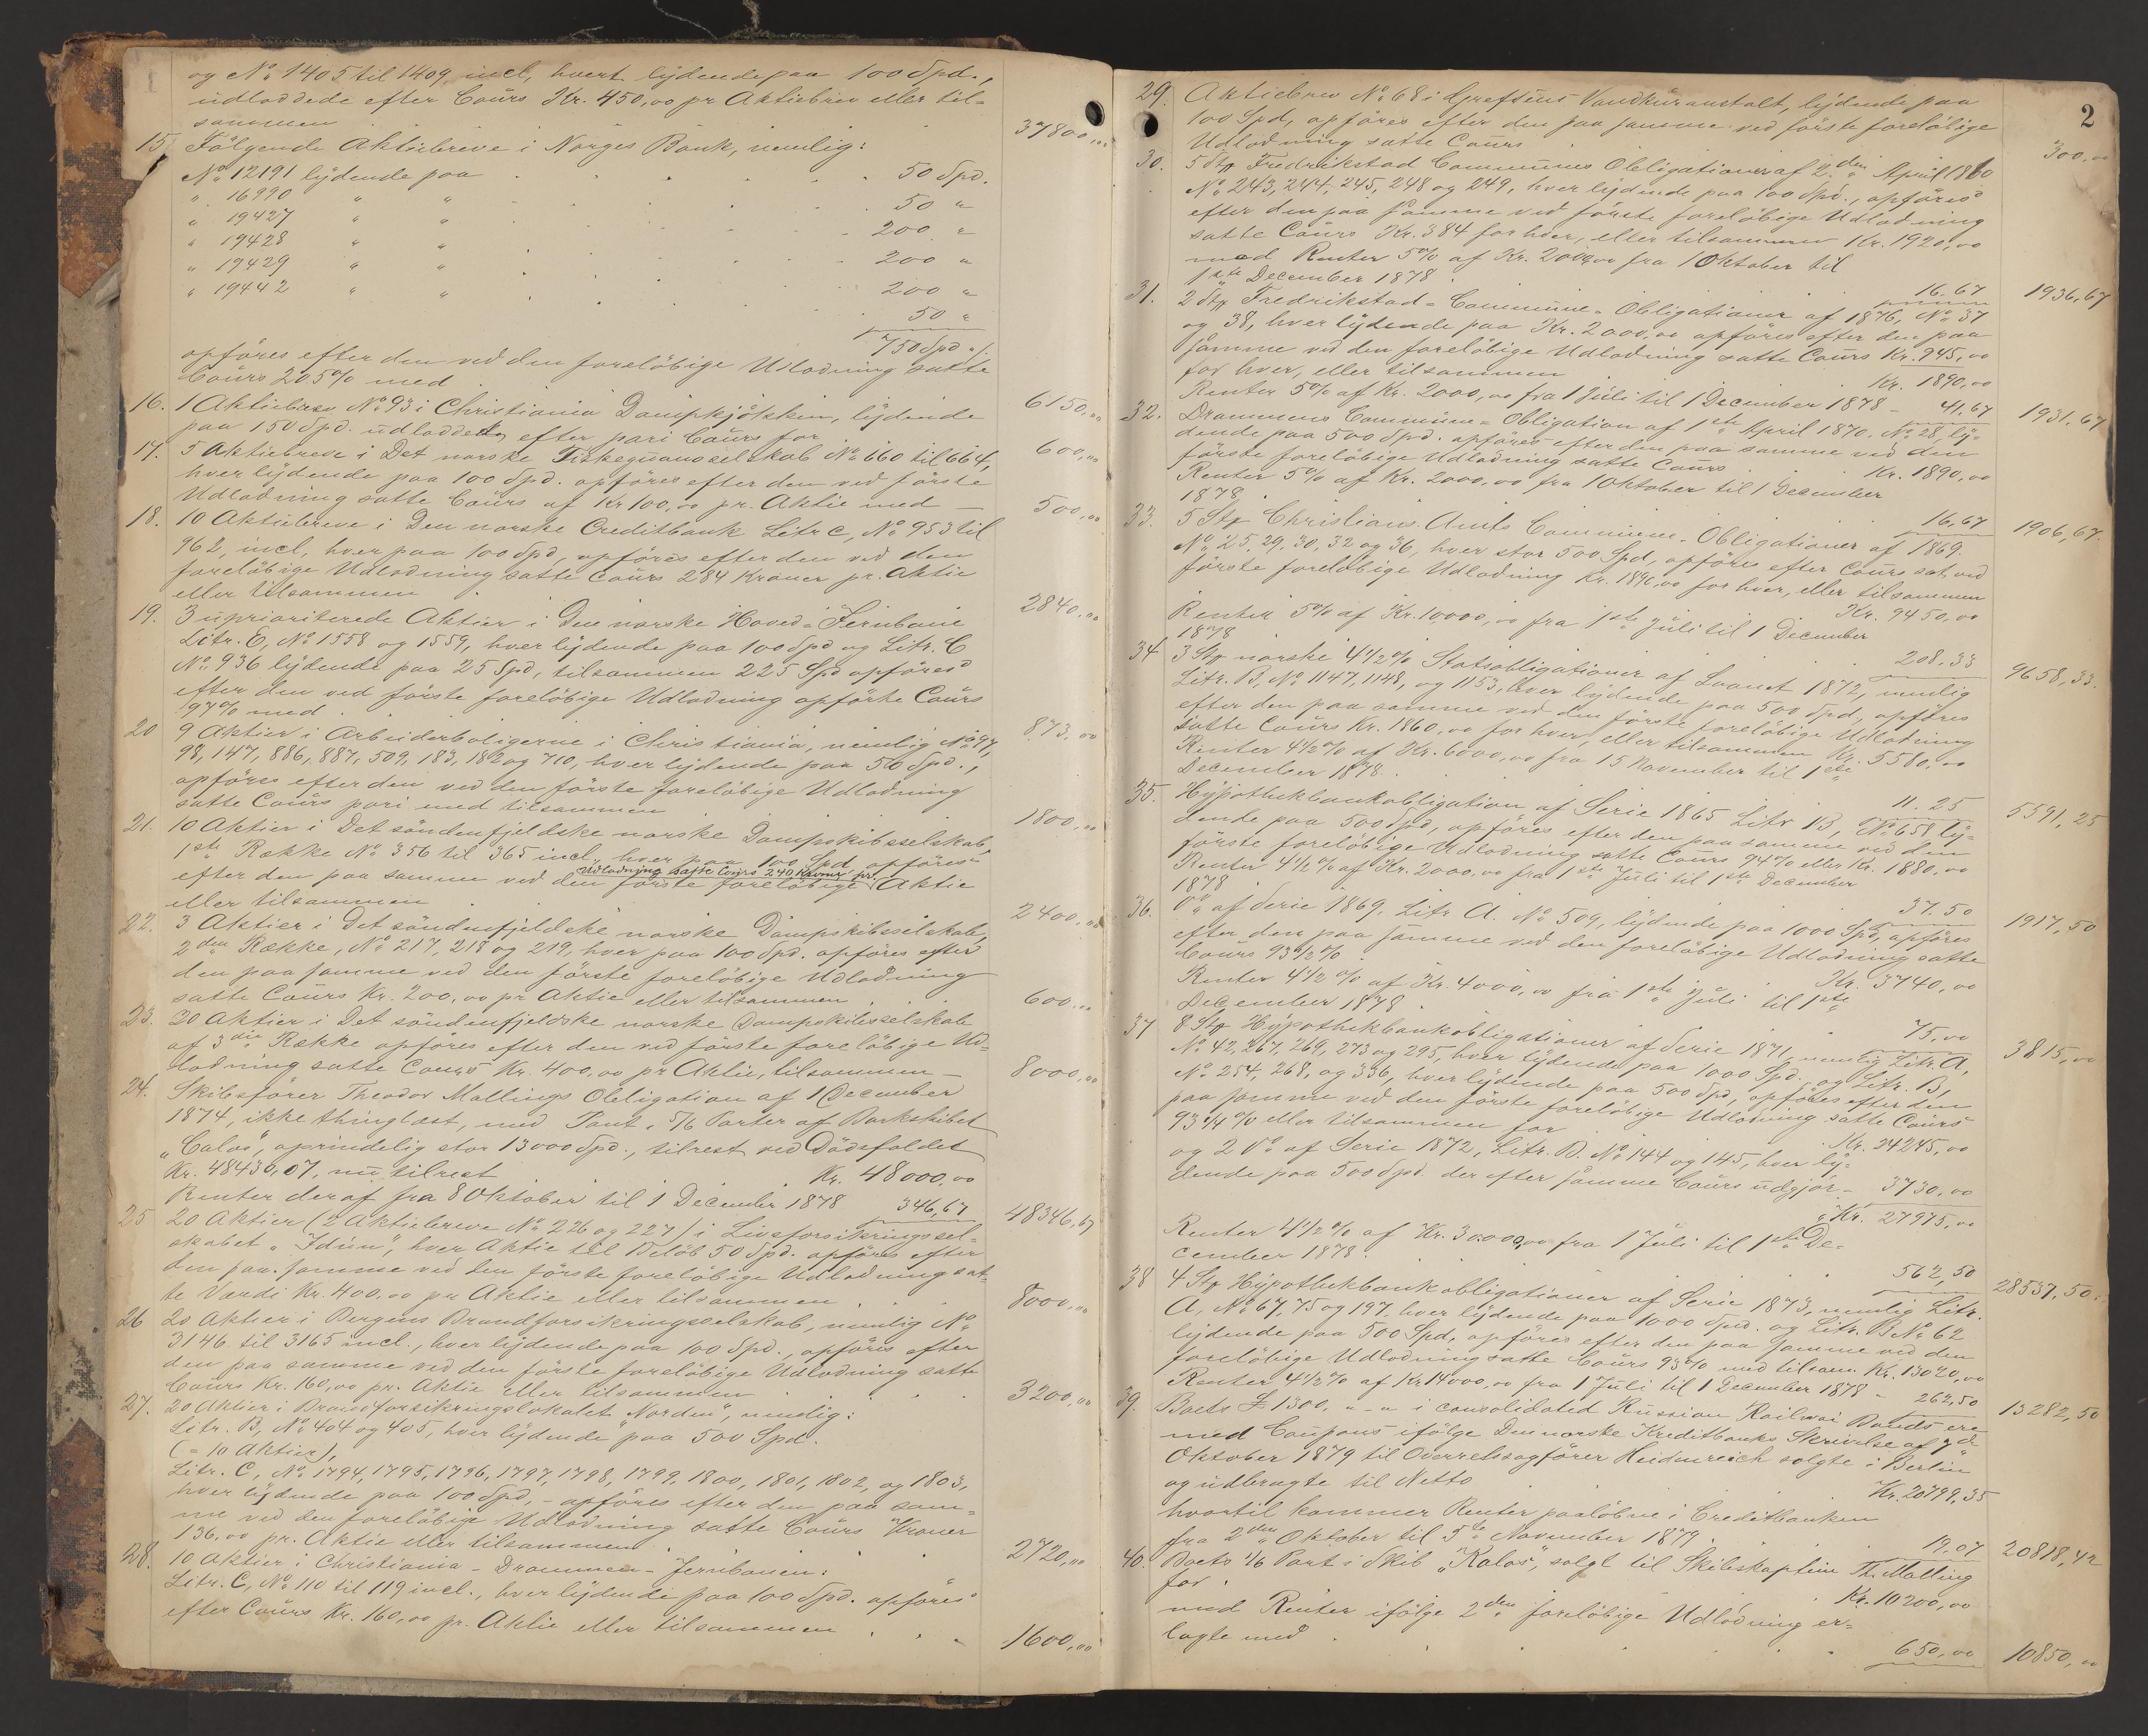 og No. 1405 til 1409 incl, hvert lydende paa 100 Spd.,
udloddede efter Cours Kr. 450,00 pr Aktiebrev eller til=
sammen 37800,00
15. Følgende Aktiebreve i Norges Bank, nemlig:
No. 12191 lydende paa 50 Spd.
" 16990 " " 50 "
" 19427 " " 200 "
" 19428 " " 200 "
" 19429 " " 200 "
" 19442 " " 50 "
750 Spd
opføres efter den ved den foreløbige Udlodning satte
Cours 205% med 6150,00
16. 1 Aktiebrev No. 93 i Christiania Dampkjøkken, lydende
paa 150 Spd. udloddedes efter pari Cours for 600,00
17. 5 Aktiebreve i Det norske Fiskeguanoselskab No. 660 til 664,
hver lydende paa 100 Spd. opføres efter den ved første
Udlodning satte Cours af Kr 100,00 pr. Aktie med 500,00
18. 10 Aktiebreve i Den norske Creditbank Litr C, No. 953 til
962, incl, hver paa 100 Spd, opføres efter den ved den
foreløbige Udlodning satte Cours 284 Kroner pr. Aktie
eller tilsammen 2840,00
19. 3 uprioriterede Aktier i Den norske Hoved=Jernbane
Litr. C, No. 1558 og 1559, hver lydende paa 100 Spd og Litr. C
No. 936 lydende paa 25 Spd, tilsammen 225 Spd opføres
efter den ved første foreløbige Udlodning opførte Cours
97% med 873,00
20 9 Aktier i Arbeiderboligerne i Christiania, nemlig No. 97,
98, 147, 886, 887, 509, 183, 182 og 710, hver lydende paa 50 Spd.,
opføres efter den ved den første foreløbige Udlodning
satte Cours pari med tilsammen 1800,00
21. 10 Aktier i Det søndenfjeldske norske Dampskibsselskab,
1ste Række No. 356 til 365 incl., hver paa 100 Spd, opføres
Udlodning satte Cours 240 Kroner pr.
efter den paa samme ved den første foreløbige Aktie
eller tilsammen 2400,00
22. 3 Aktier i Det søndenfjeldske norske Dampskibsselskab,
2den Række, No. 217, 218 og 219, hver paa 100 Spd. opføres efter
den paa samme ved den første foreløbige Udlodning
satte Cours Kr. 200,00 pr Aktie eller tilsammen 600,00
23. 20 Aktier i Det søndenfjeldske norske Dampskibsselskab
af 3die Række opføres efter den ved første foreløbige Ud=
lodning satte Cours Kr. 400,00 pr Aktie, tilsammen 8000,00
24. Skibsfører Theodor Mallings Obligation af 1 December
1874, ikke thinglæst, med Pant i 5/16 Parter af Barkskibet
"Calas", oprindelig stor 13000 Spd., tilrest ved Dødsfaldet
Kr. 48430,07, nu tilrest Kr. 48000,00
Renter deraf fra 8 Oktober til 1 December 1878 346,67 48346,67
25 20 Aktier (2 Aktiebreve No. 226 og 227) i Livsforsikringssel=
skabet "Idun", hver Aktie til Beløb 50 Spd. opføres efter
den paa samme ved den første foreløbige Udlodning sat=
te Værdi Kr. 400,00 pr Aktie eller tilsammen 8000,00
26 20 Aktier i Bergens Brandforsikringsselskab, nemlig No.
3146 til 3165 incl., hver lydende paa 100 Spd., opføres efter
den paa samme ved den første foreløbige Udlodning satte
Cours Kr. 160,00 pr. Aktie eller tilsammen 3200,00
27. 20 Aktier i Brandforsikringslokalet "Norden", nemlig:
Litr. B, No. 404 og 405, hver lydende paa 500 Spd.
(= 10 Aktier),
Litr. C, No. 1794, 1795, 1796, 1797, 1798, 1799, 1800, 1801, 1802, og 1803,
hver lydende paa 100 Spd, - opføres efter den paa sam=
me ved den foreløbige Udlodning satte Cours Kroner
136,00 pr. Aktie eller tilsammen 2720,00
28. 10 Aktier i Christiania - Drammen - Jernbanen:
Litr. C, No. 110 til 119 incl., hver lydende paa 100 Spd. opføres
efter Cours Kr. 160,00 pr. Aktie eller tilsammen 1600,00
2
29. Aktiebrev No. 68 i Grefsens Vandkuranstalt, lydende paa
100 Spd, opføres efter den paa samme ved første foreløbige
Udlodning satte Cours 300,00
30. 5 Stk Fredrikstad Communes Obligationer af 2den April 1860
No. 243, 244, 245, 248 og 249, hver lydende paa 100 Spd., opføres
efter den paa samme ved første foreløbige Udlodning
satte Cours Kr. 384 for hver, eller tilsammen Kr. 1920,00
med Renter 5% af Kr. 2000,00 fra 1 Oktober til
1ste December 1878 16,67 1936,67
31. 2 Stk Fredrikstad=Commune=Obligationer af 1876, No. 37
og 38, hver lydende paa Kr. 2000,00 opføres efter den paa
samme ved den foreløbige Udlodning satte Cours Kr. 945,00
for hver, eller tilsammen Kr. 1890,00
Renter 5% af Kr. 2000,00 fra 1 Juli til 1 December 1878 - 41,67 1931,67
32. Drammens Commune=Obligation af 1ste April 1870, No. 28, ly=
dende paa 500 Spd. opføres efter den paa samme ved den
første foreløbige Udlodning satte Cours Kr. 1890,00
Renter 5% af Kr. 2000,00 fra 1 Oktober til 1 December
1878 16,67 1906,67
33. 5 Stk Christians Amts Commune-Obligationer af 1869.
No. 25, 29, 30, 32 og 36, hver stor 500 Spd, opføres efter Cours sat ved
første foreløbige Udlodning Kr. 1890,00 for hver, eller tilsammen
Kr. 9450,00
Renter 5% af Kr. 10,000,00 fra 1ste Juli til 1 December
1878 208,33 9658,33
34 3 Stk norske 4 1/2% Statsobligationer af Laanet 1872, nemlig
Litr. B, No. 1147, 1148, og 1153, hver lydende paa 500 Spd., opføres
efter den paa samme ved den første foreløbige Udlodning
satte Cours Kr. 1860,00 for hver, eller tilsammen Kr. 5580,00
Renter 4 1/2% af Kr. 6000,00 fra 15 November til 1ste
December 1878 11.25 5591,25
35. Hypothekbankobligation af Serie 1865 Litr B, No. 658 ly=
dende paa 500 Spd, opføres efter den paa samme ved den
første foreløbige Udlodning satte Cours 94% eller Kr. 1880,00
Renter 4 1/2% af Kr. 2000,00 fra 1ste Juli til 1ste December
1878 37.50 1917,50
36. Do. af Serie 1869, Litr A. No. 509, lydende paa 1000 Spd, opføres
efter den paa samme ved den foreløbige Udlodning satte
Cours 93 1/2% Kr. 3740,00
Renter 4 1/2% af Kr. 4000,00 fra 1ste Juli til 1ste
December 1878 75,00 3815,00
37 8 Stk Hypothekbankobligationer af Serie 1871, nemlig Litr. A,
No. 42, 267, 269, 273 og 295, hver lydende paa 1000 Spd. og Litr. B,
No. 254, 268, og 336, hver lydende paa 500 Spd, opføres efter den
paa samme ved den første foreløbige Udlodning satte Cours
93 1/4% eller tilsammen for Kr. 24245,00
og 2 Do. af Serie 1872, Litr. B. No. 144 og 145, hver ly=
dende paa 500 Spd. der efter samme Cours udgjør - 3730,00
Kr. 27975,00
Renter 4 1/2% af Kr. 30.000,00 fra 1 Juli til 1ste De=
cember 1878. 562,50 28537,50
38 4 Stk Hypothekbankobligationer af Serie 1873, nemlig Litr.
A, No. 67, 75 og 197, hver lydende paa 1000 Spd. og Litr. B No. 62
lydende paa 500 Spd, opføres efter den paa samme ved den
foreløbige Udlodning satte Cours 93% med tilsam. Kr. 13020,00
Renter 4 1/2% af Kr 14000,00 fra 1 Juli til 1 December 1878 - 262,50 13282,50
39. Boets £ 1300. " - " i consolidated Russian Railwai Bonds ere
med Coupons ifølge Den norske Kreditbanks Skrivelse af 7de
Oktober 1879 til Overretssagfører Heidenreich solgte i Berlin
og udbragte til Netto Kr. 20799,35
hvortil kommer Renter paaløbne i Creditbanken
fra 2den Oktober til 5te November 1879 19,07 20818,42
40. Boets 1/16 Part i Skib "Kalas", solgt til Skibskaptein Th. Malling
for Kr. 10200,00
med Renter ifølge 2den foreløbige Udlodning er=
lagte med 650,00 10850,00